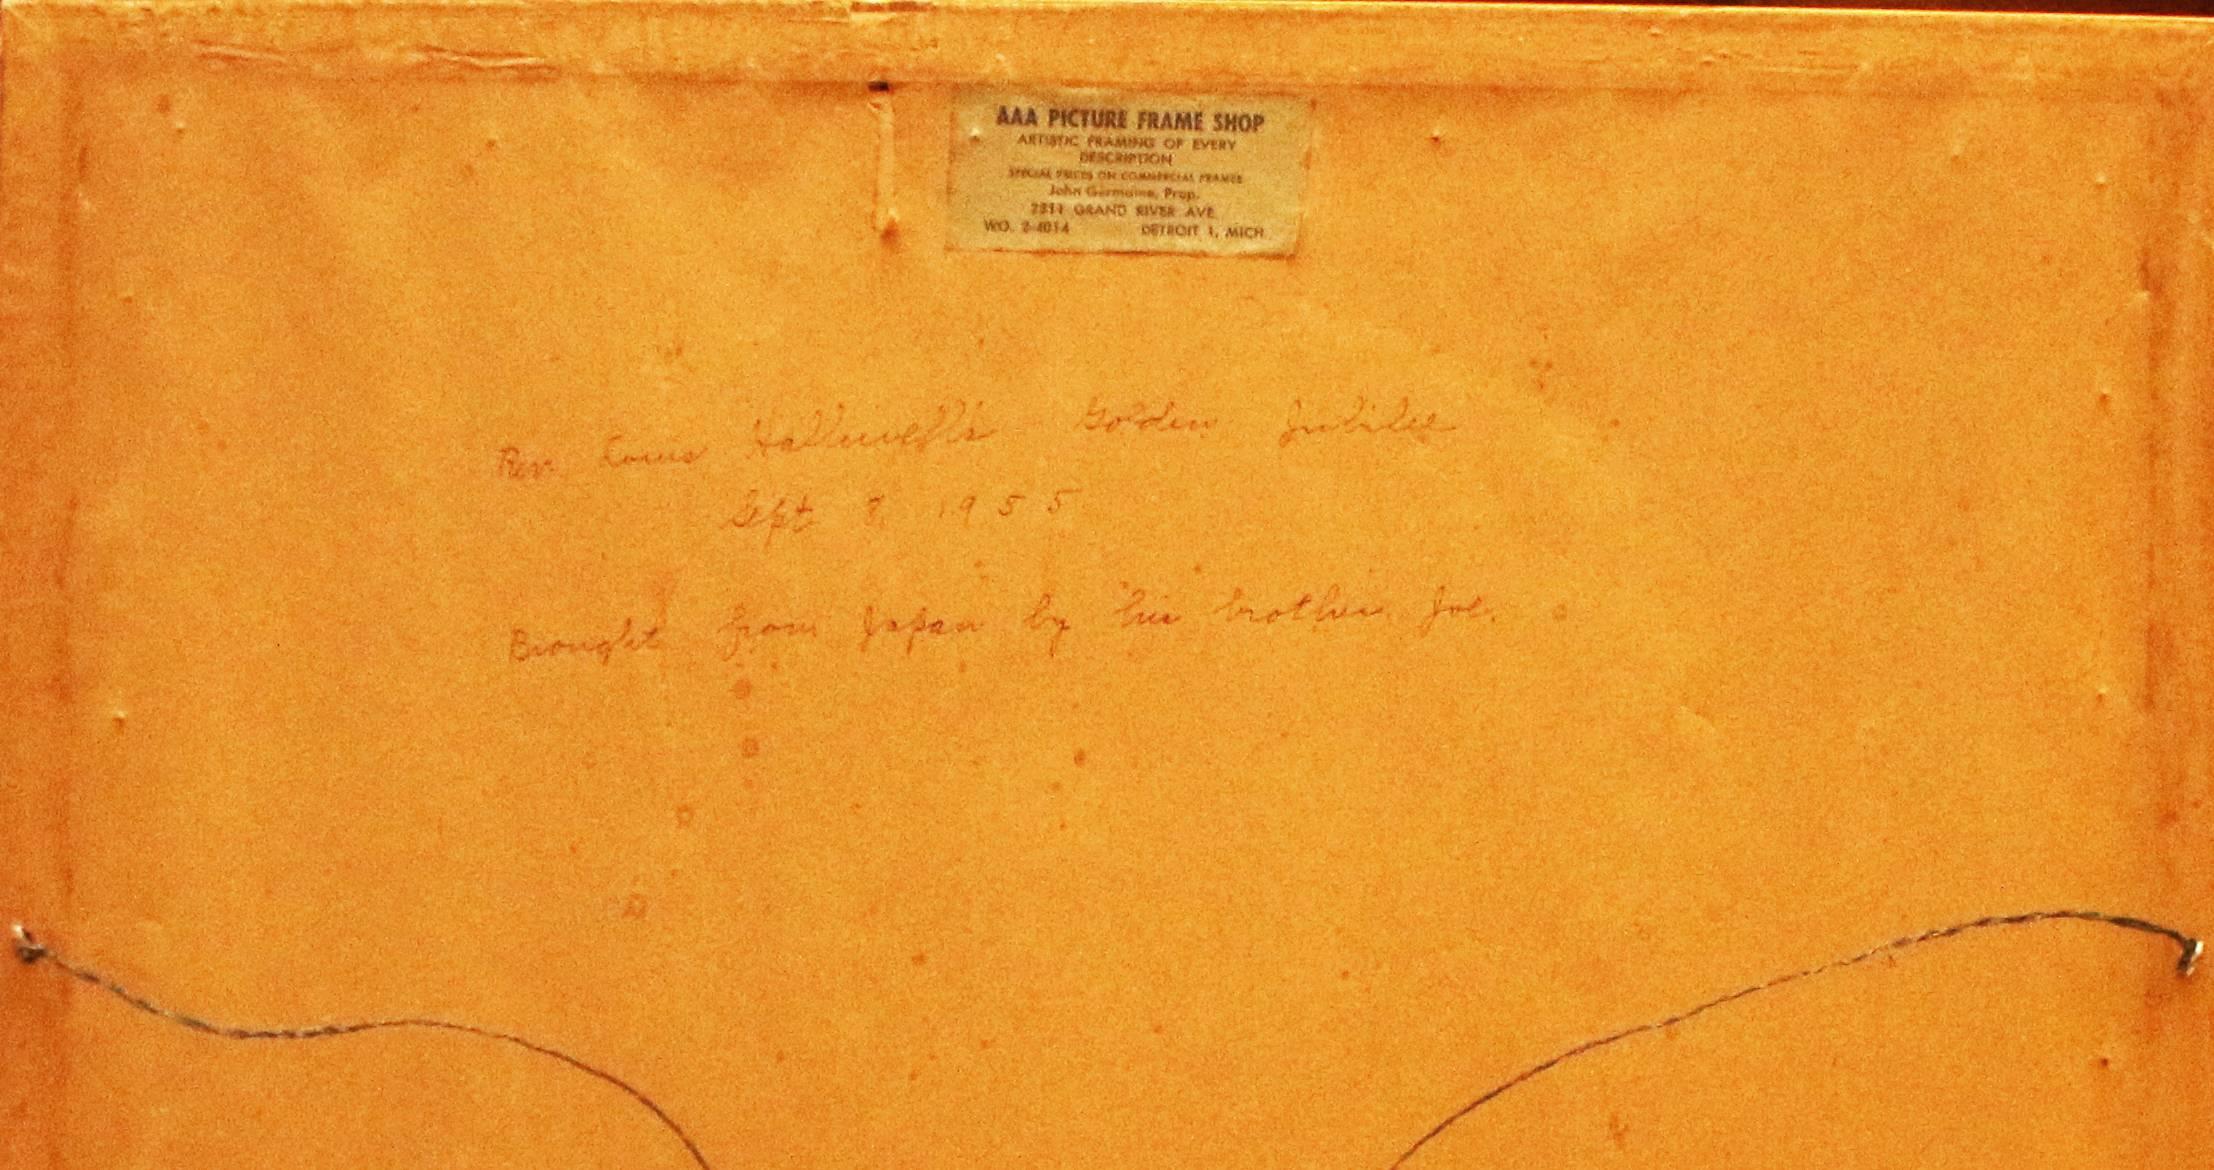 AAA PICTURE FRAME SHOP
ARTISTIC FRAMING OF EVERY
DESCRIPTION
SPECIAL PRICES ON COMMERCIAL FRAMES
John Germaine, Prop.
GRAND RIVER AVE
WO. 2-4014 DETROIT 1, MICH
Rev. Louis Halliwell's Golden Jubilee
Sept 8, 1955
Brought from Japan by his brother Joe.